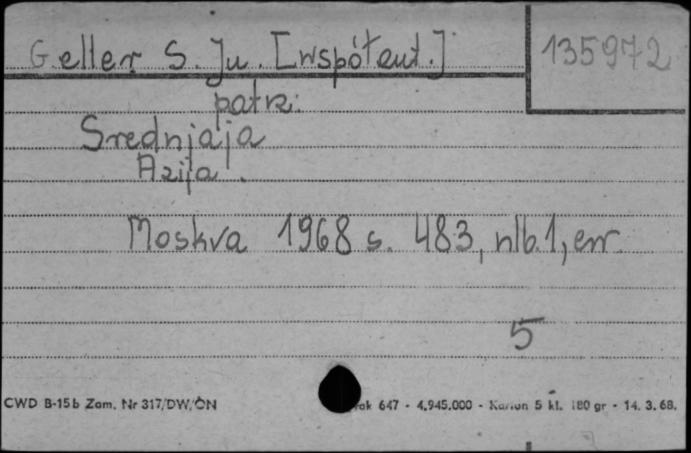 Geller S. Ju. [współaut.]
135972
patrz:
Srednjaja
Azija.
Moskva 1968 s. 483, nlb. 1, err.
5
CWD B-15b Zam. Nr 317/DW/ON
647 - 4.945.000 - Karton 5 kl. 180 gr - 14. 3. 68.